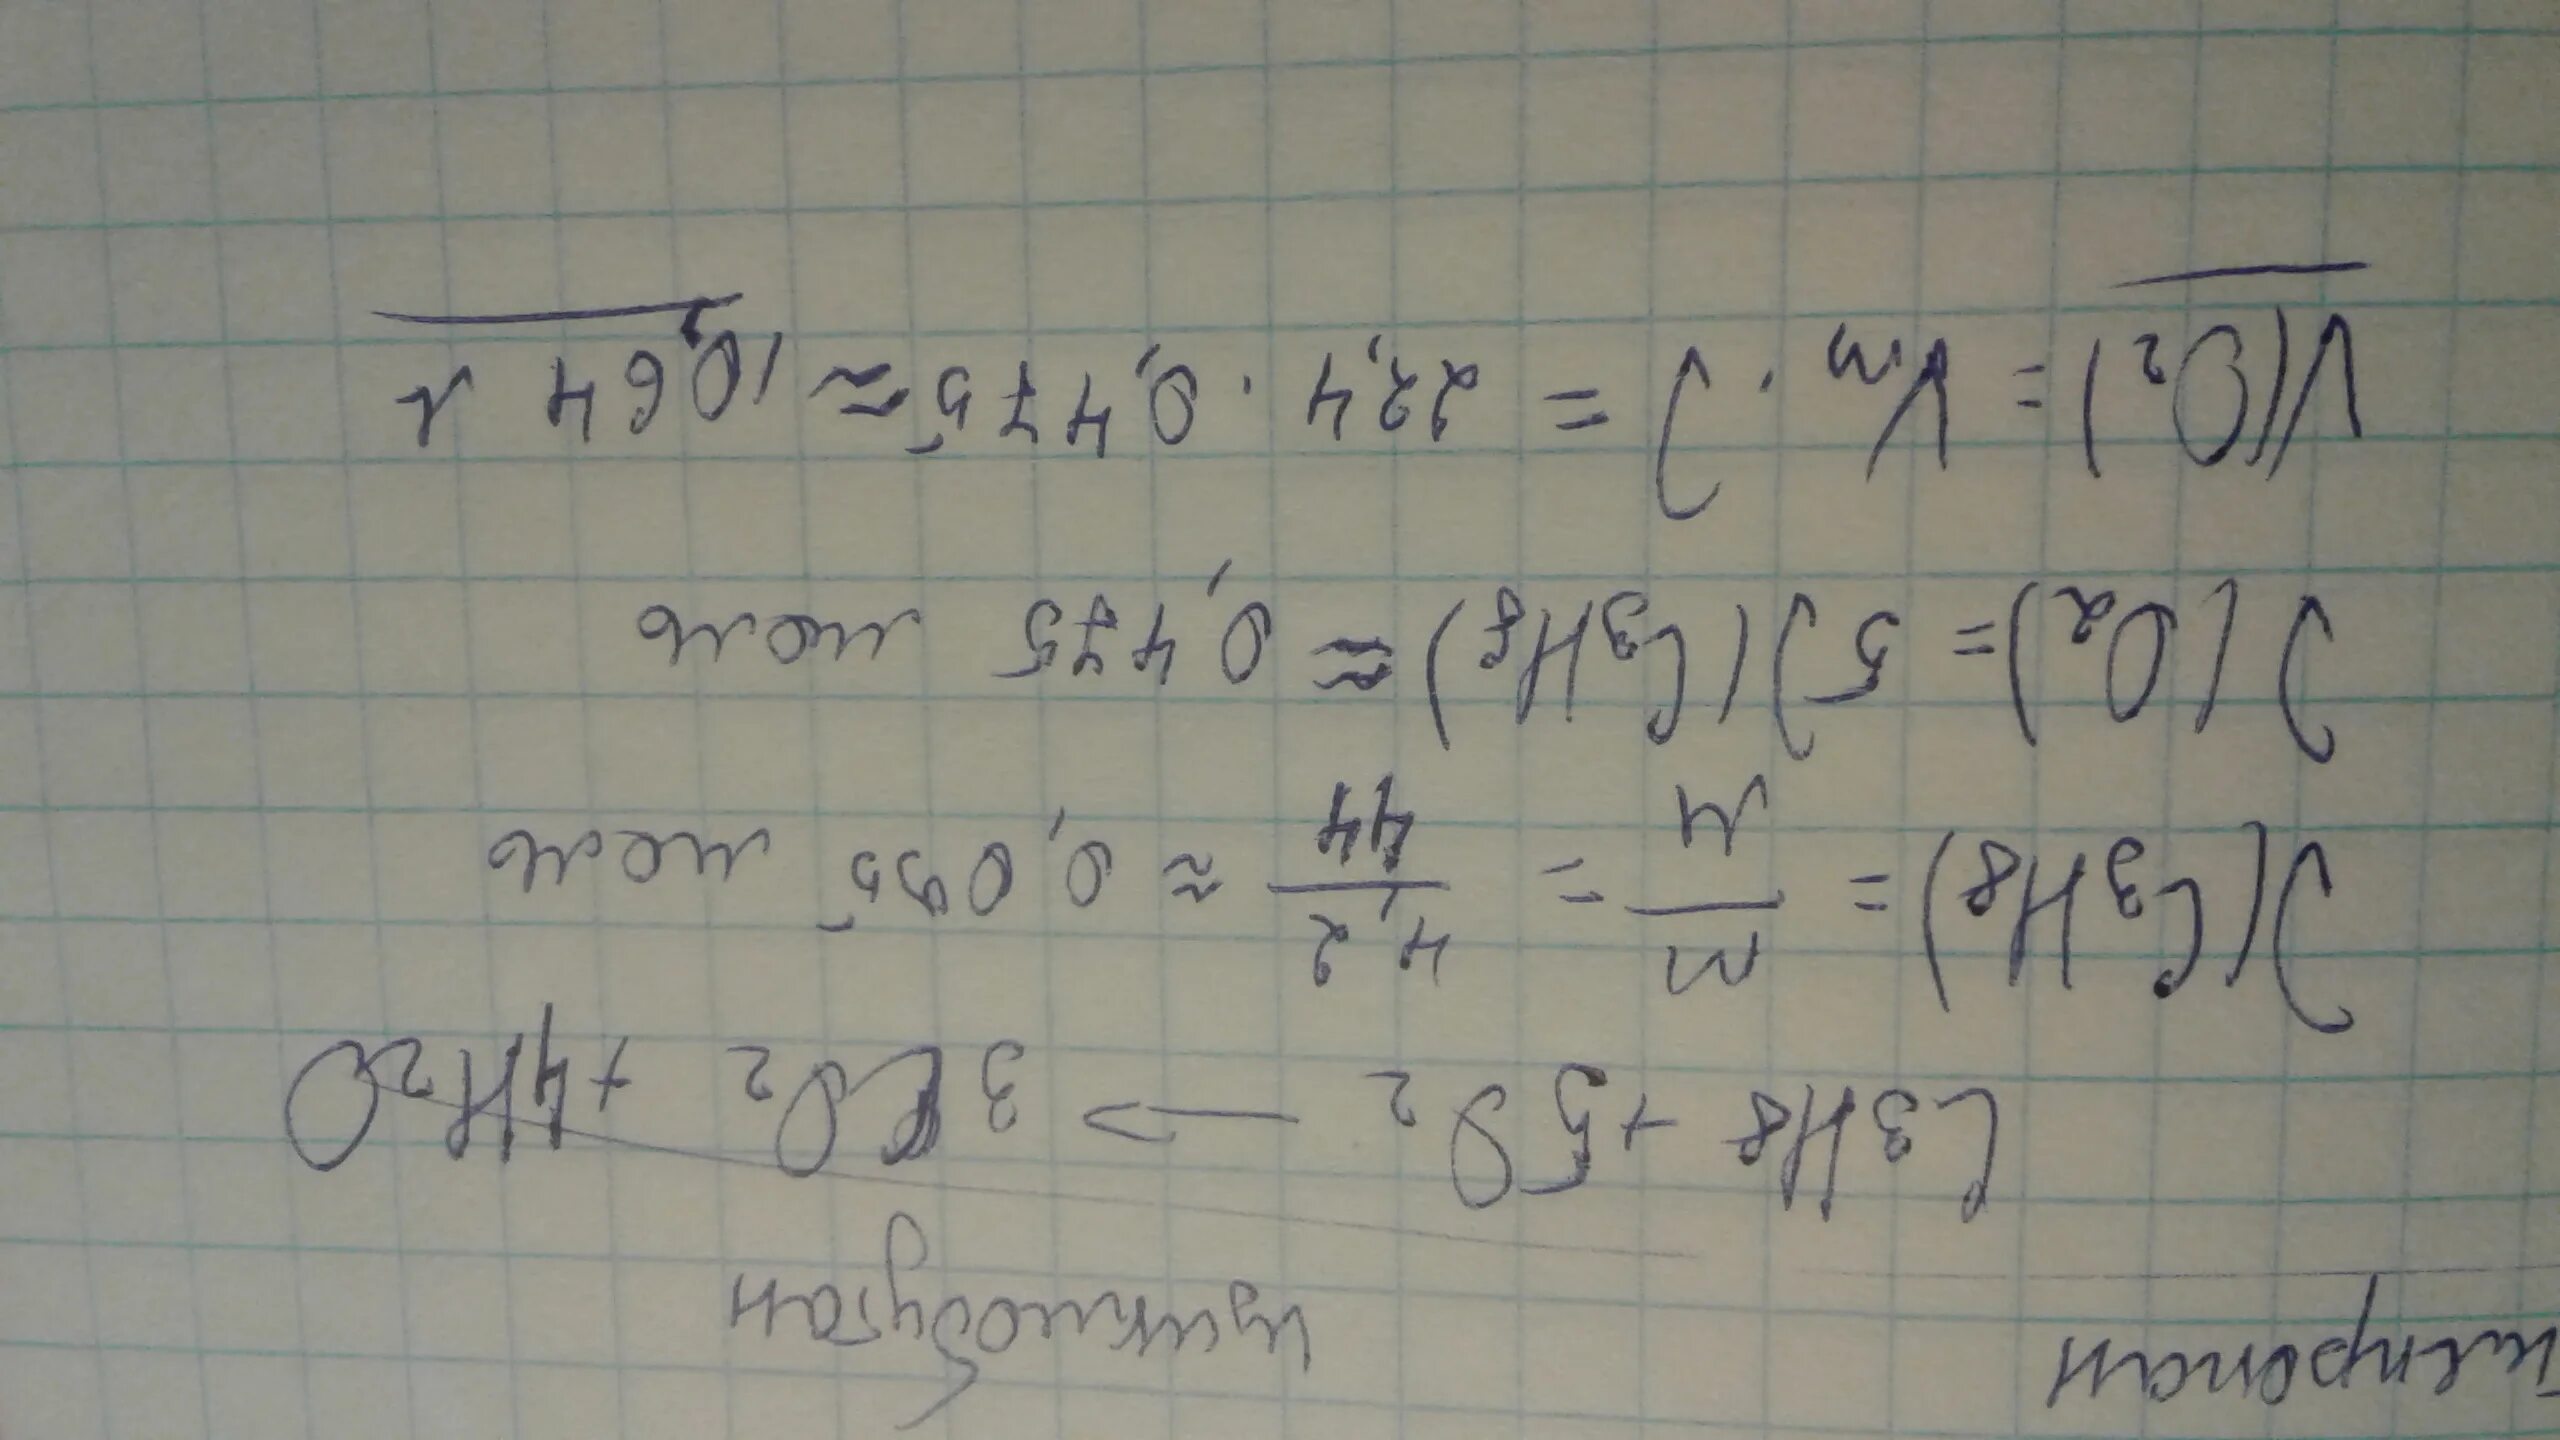 циклобутан
C3H8 + 5O2 → 3CO2 + 4H2O
ν(C3H8) = m/M = 4,2/44 ≈ 0,095 моль
ν(O2) = 5ν(C3H8) ≈ 0,475 моль
V(O2) = Vm · ν = 22,4 · 0,475 ≈ 10,64 л